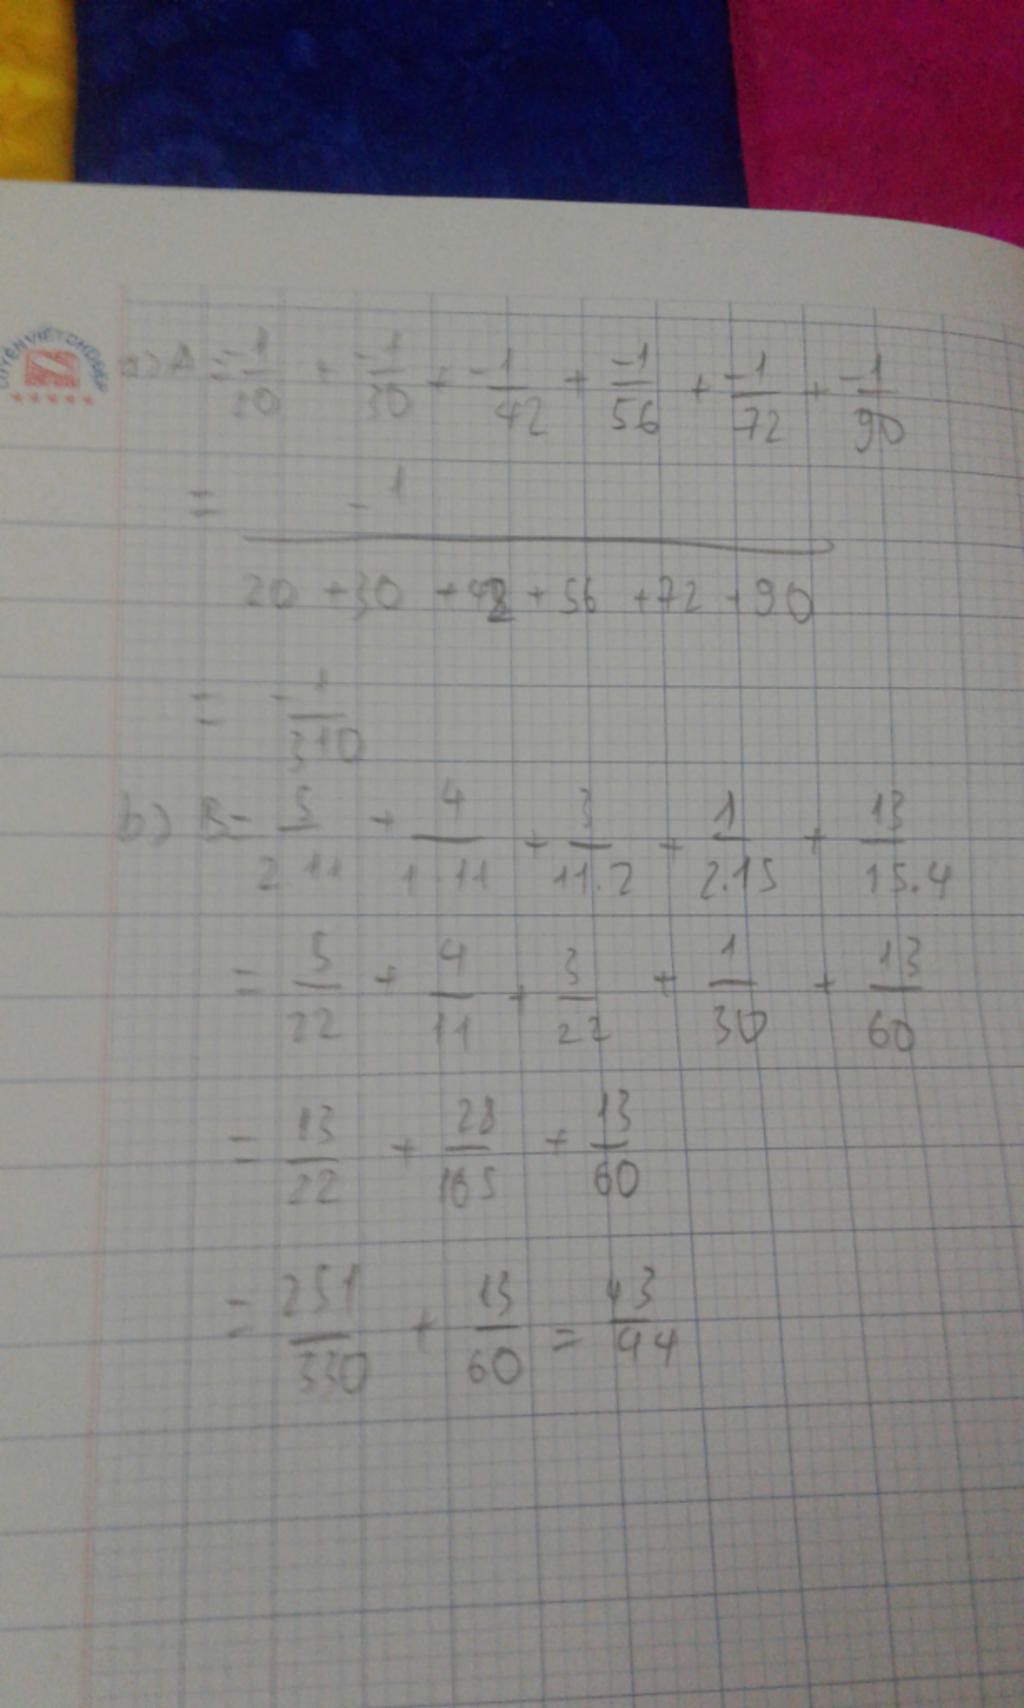 a) A = -1/20 + -1/30 + -1/42 + -1/56 + -1/72 + -1/90
= -1/20 + 30 + 42 + 56 + 72 + 90
= -1/310
b) B = 5/2.11 + 4/1.11 + 3/11.2 + 1/2.15 + 13/15.4
= 5/22 + 4/11 + 3/22 + 1/30 + 13/60
= 13/22 + 28/165 + 13/60
= 251/330 + 13/60 = 43/44